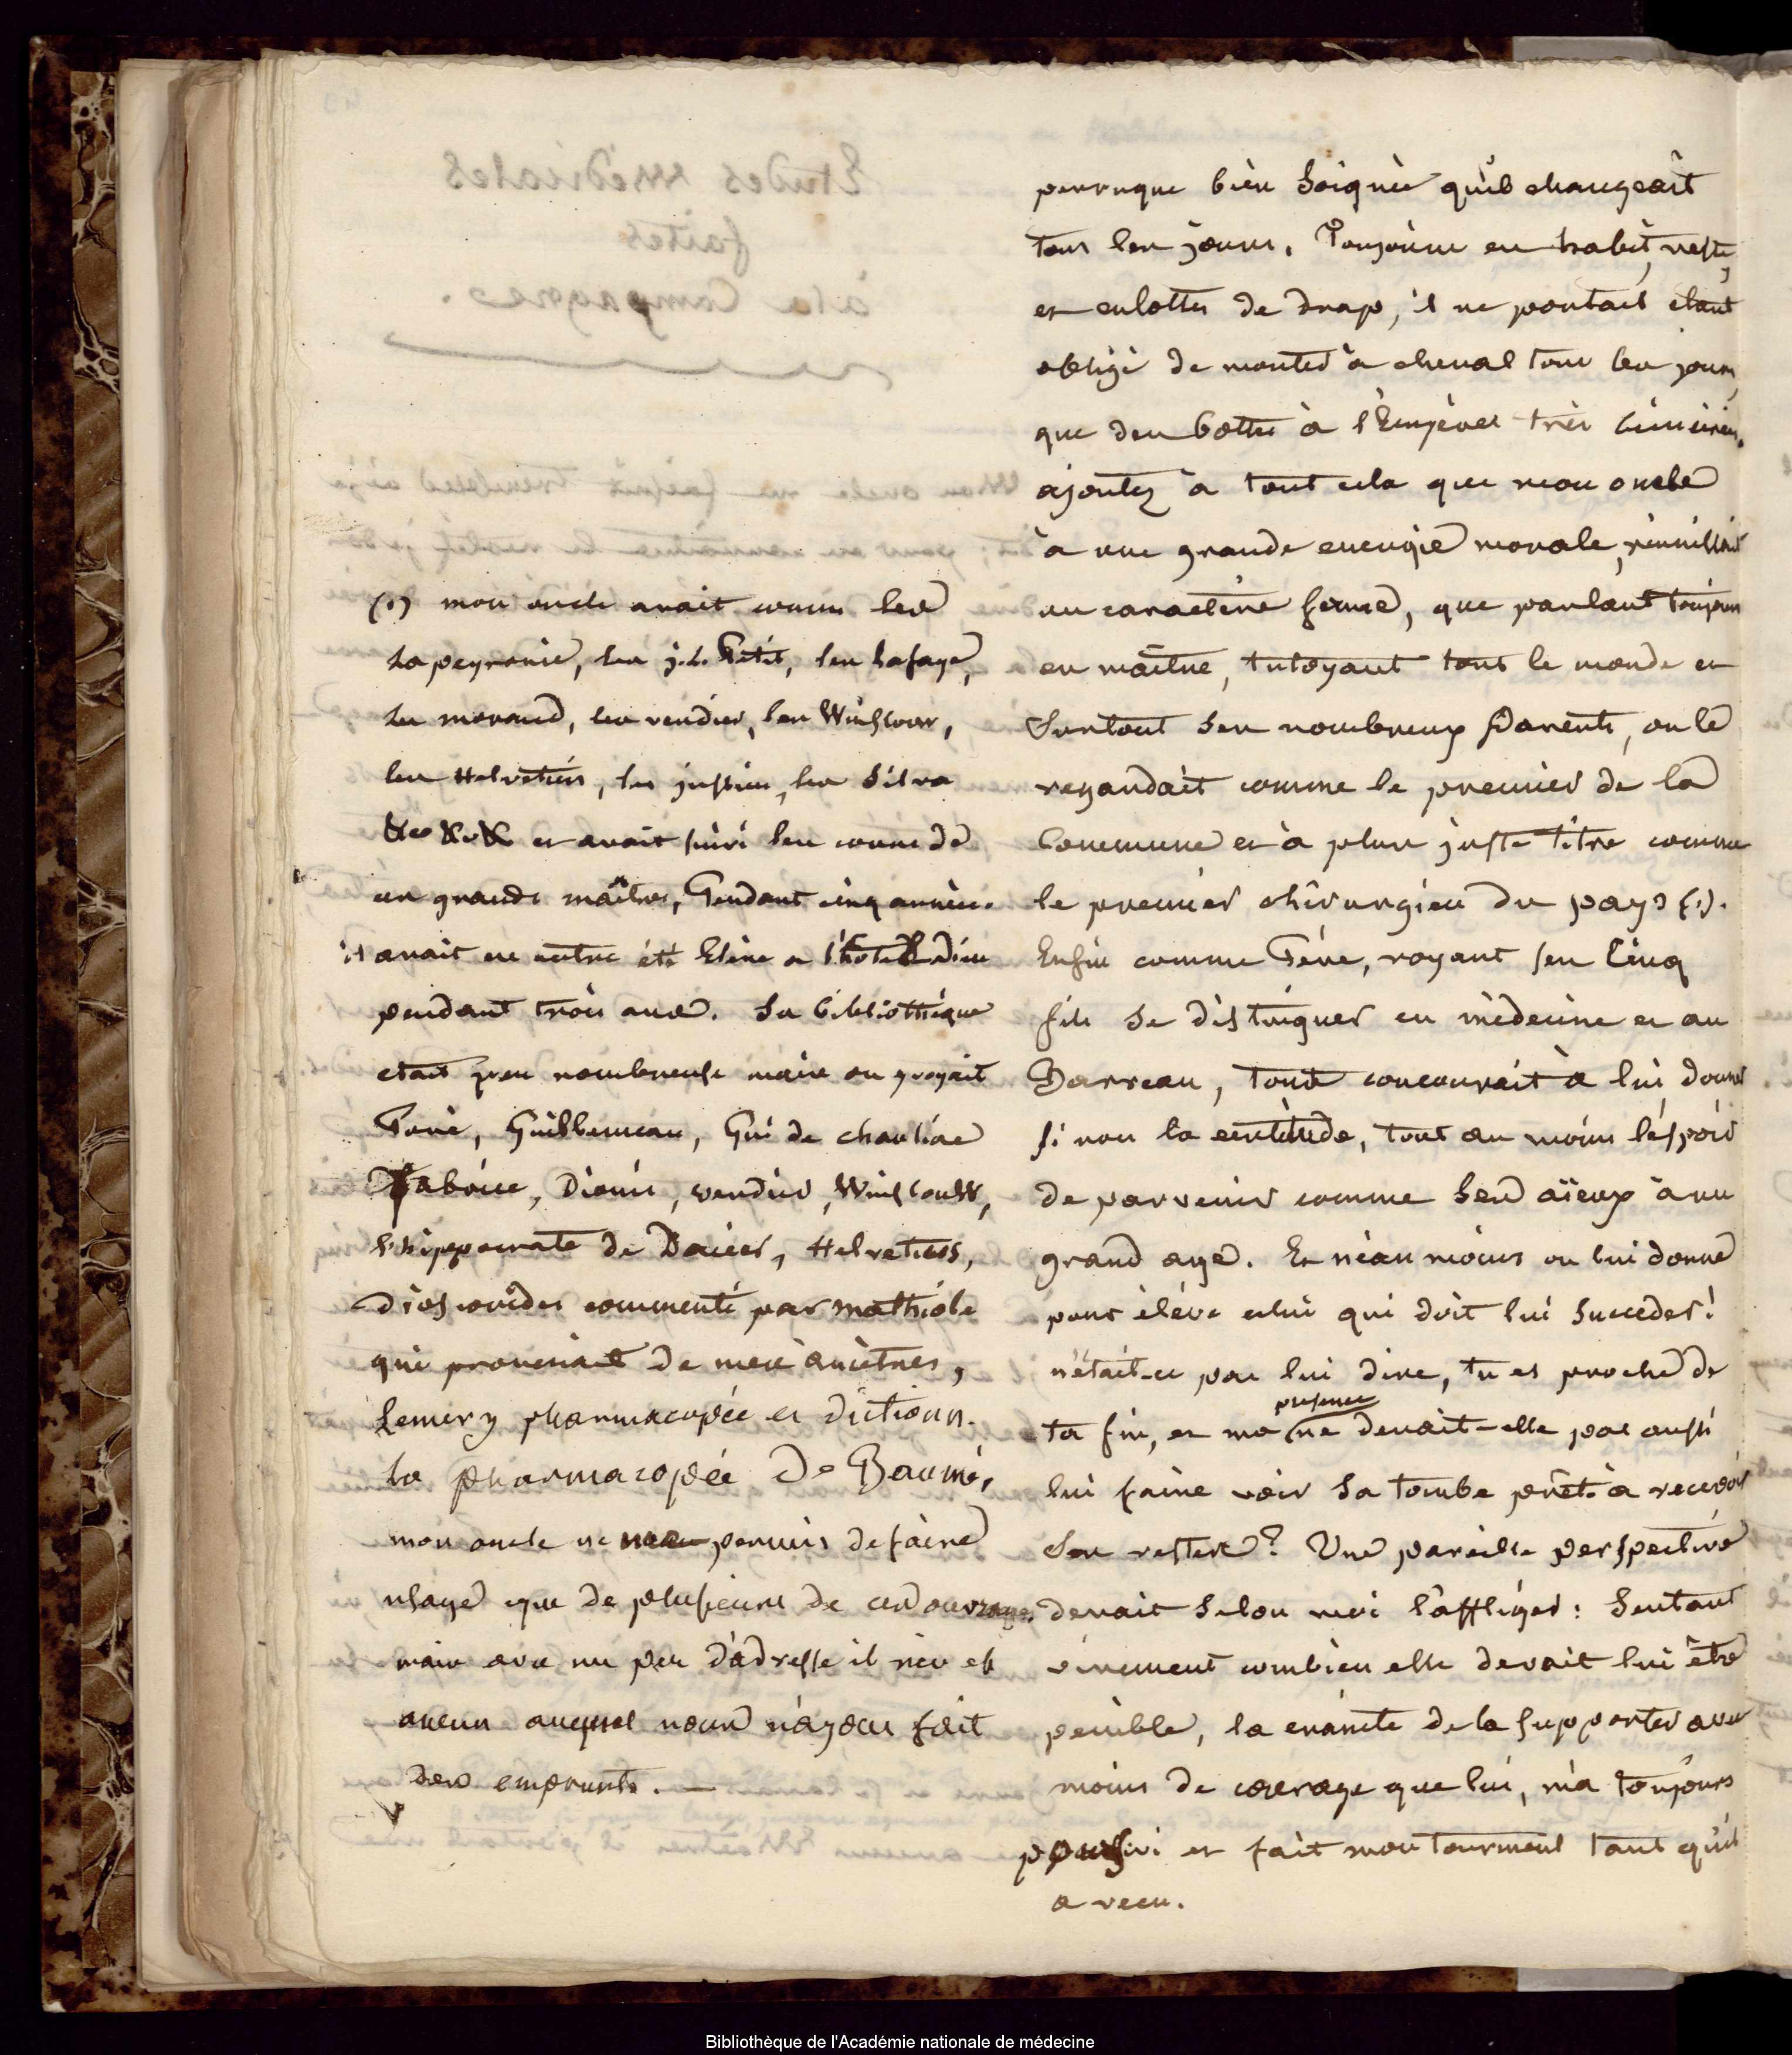 perruque bien soignée qu'il changeait
tous les jours. Toujours en habit, veste,
et culottes de drap, il ne portait étant
obligé de monter à cheval tous les jours,
que des bottes à l'Ecuyère très
ajoutez à tout cela que mon oncle
à une grande energie morale, réunissait
un caractère ferme, que parlant toujours
en maître, tutoyant tout le monde et
surtout ses nombreux Parents, on le
regardait comme le premier de la
Commune et à plus juste titre comme
le premier chirurgien du pays (1).
Enfin comme Père, voyant ses Cinq
fils se distinguer en médecine et au
Barreau, tout concourait à lui donner
si non la certitude, tout au moins l'éspoir
de parvenir comme ses aïeux à un
grand age. Et néanmoins on lui donne
pour élève celui qui doit lui succeder!
n'était-ce pas lui dire, tu es proche de
ta fin, et ma presence ne devait-elle pas aussi
lui faire voir sa tombe prête à recevoir
ses restes? Une pareille perspective
devait selon moi l'affliger: Sentant
vivement combien elle devait lui être
penible, la crainte de la supporter avec
moins de courage que lui, m'a toujours
poursuivi et fait mon tourment tant qu'il
a vecu.
(1) mon oncle avait connu les
Lapeyronie, les j. L. Petit, les Lafaye,
les morand, les verdier, les Winslow,
les Helvetius, les jussieu, les Silva
&c &c & et avait suivi les cours de
ces grands maîtres, Pendant cinq années.
il avait en outre été Elève a l'hotel Dieu
pendant trois ans. Sa bibliothèque
etait peu nombreuse mais on y voyait
Paré, Guillemeau, Gui de chauliac
Fabrice, Dionis, verdier, Winslouw,
l'hippocrate de Dacier, Helvetius,
dioscorides commenté par mathiole
qui provenait de mes ancêtres,
Lemery pharmacopée et dictionn.
La pharmacopée de Baumé,
mon oncle ne permis de faire
usage que de plusieurs de ces ouvrages.
mais avec un peu d'adresse il n'en est
aucun auquel nous n'ayons fait
des emprunts. —
Etudes Médicales
faites
à la Campagne.